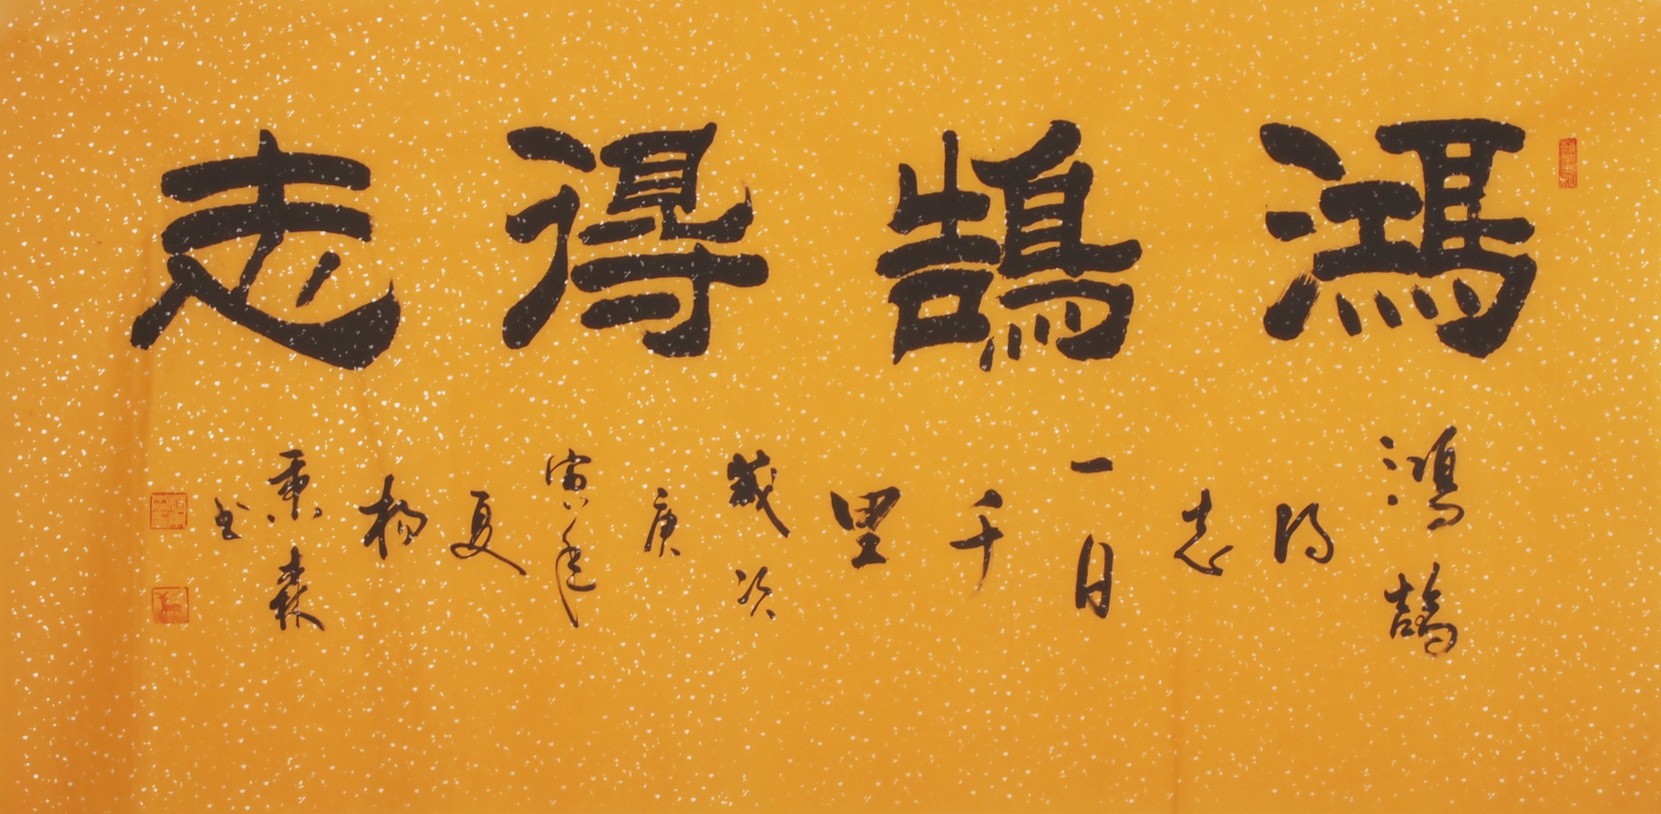 鴻鵠得志
鴻鵠得志一日千里歲次庚寅年夏楊秉森书